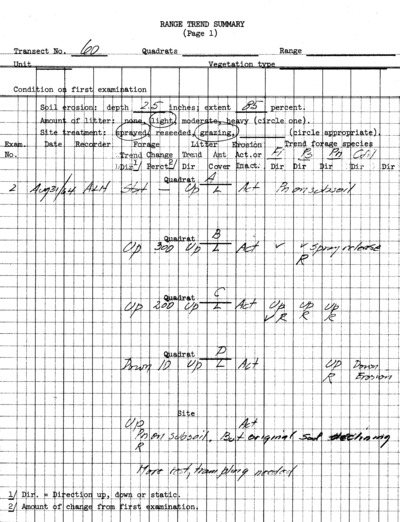 RANGE TREND SUMMARY
(Page 1)
Transect No. 60 Quadrats Range
Unit Vegetation type
Condition on first examination
Soil erosion: depth 2.5 inches; extent 85 percent.
Amount of litter: none, light, moderate, heavy (circle one).
Site treatment: sprayed, reseeded, grazing, (circle appropriate).
Exam. Date Recorder Forage Litter Erosion Trend forage species
No. Trend Change Trend Amt Act.or Fi Ps Pn
Dir 1/ Perct. 2/ Dir Cover Inact. Dir Dir Dir Dir Dir
Quadrat A
2 Aug 31/64 Up L Act Pn on subsoil
Quadrat B
Up 300 Up L Act ✓ ✓ Spray release
R
Quadrat C
Up 200 Up L Act Up Up Up
✓ R R R
Quadrat D
Down 10 Up L Act Up Down
R Erosion
Site
Up Act
Pn on subsoil. But original sod declining
R
More trampling needed
1/ Dir. = Direction up, down or static.
2/ Amount of change from first examination.